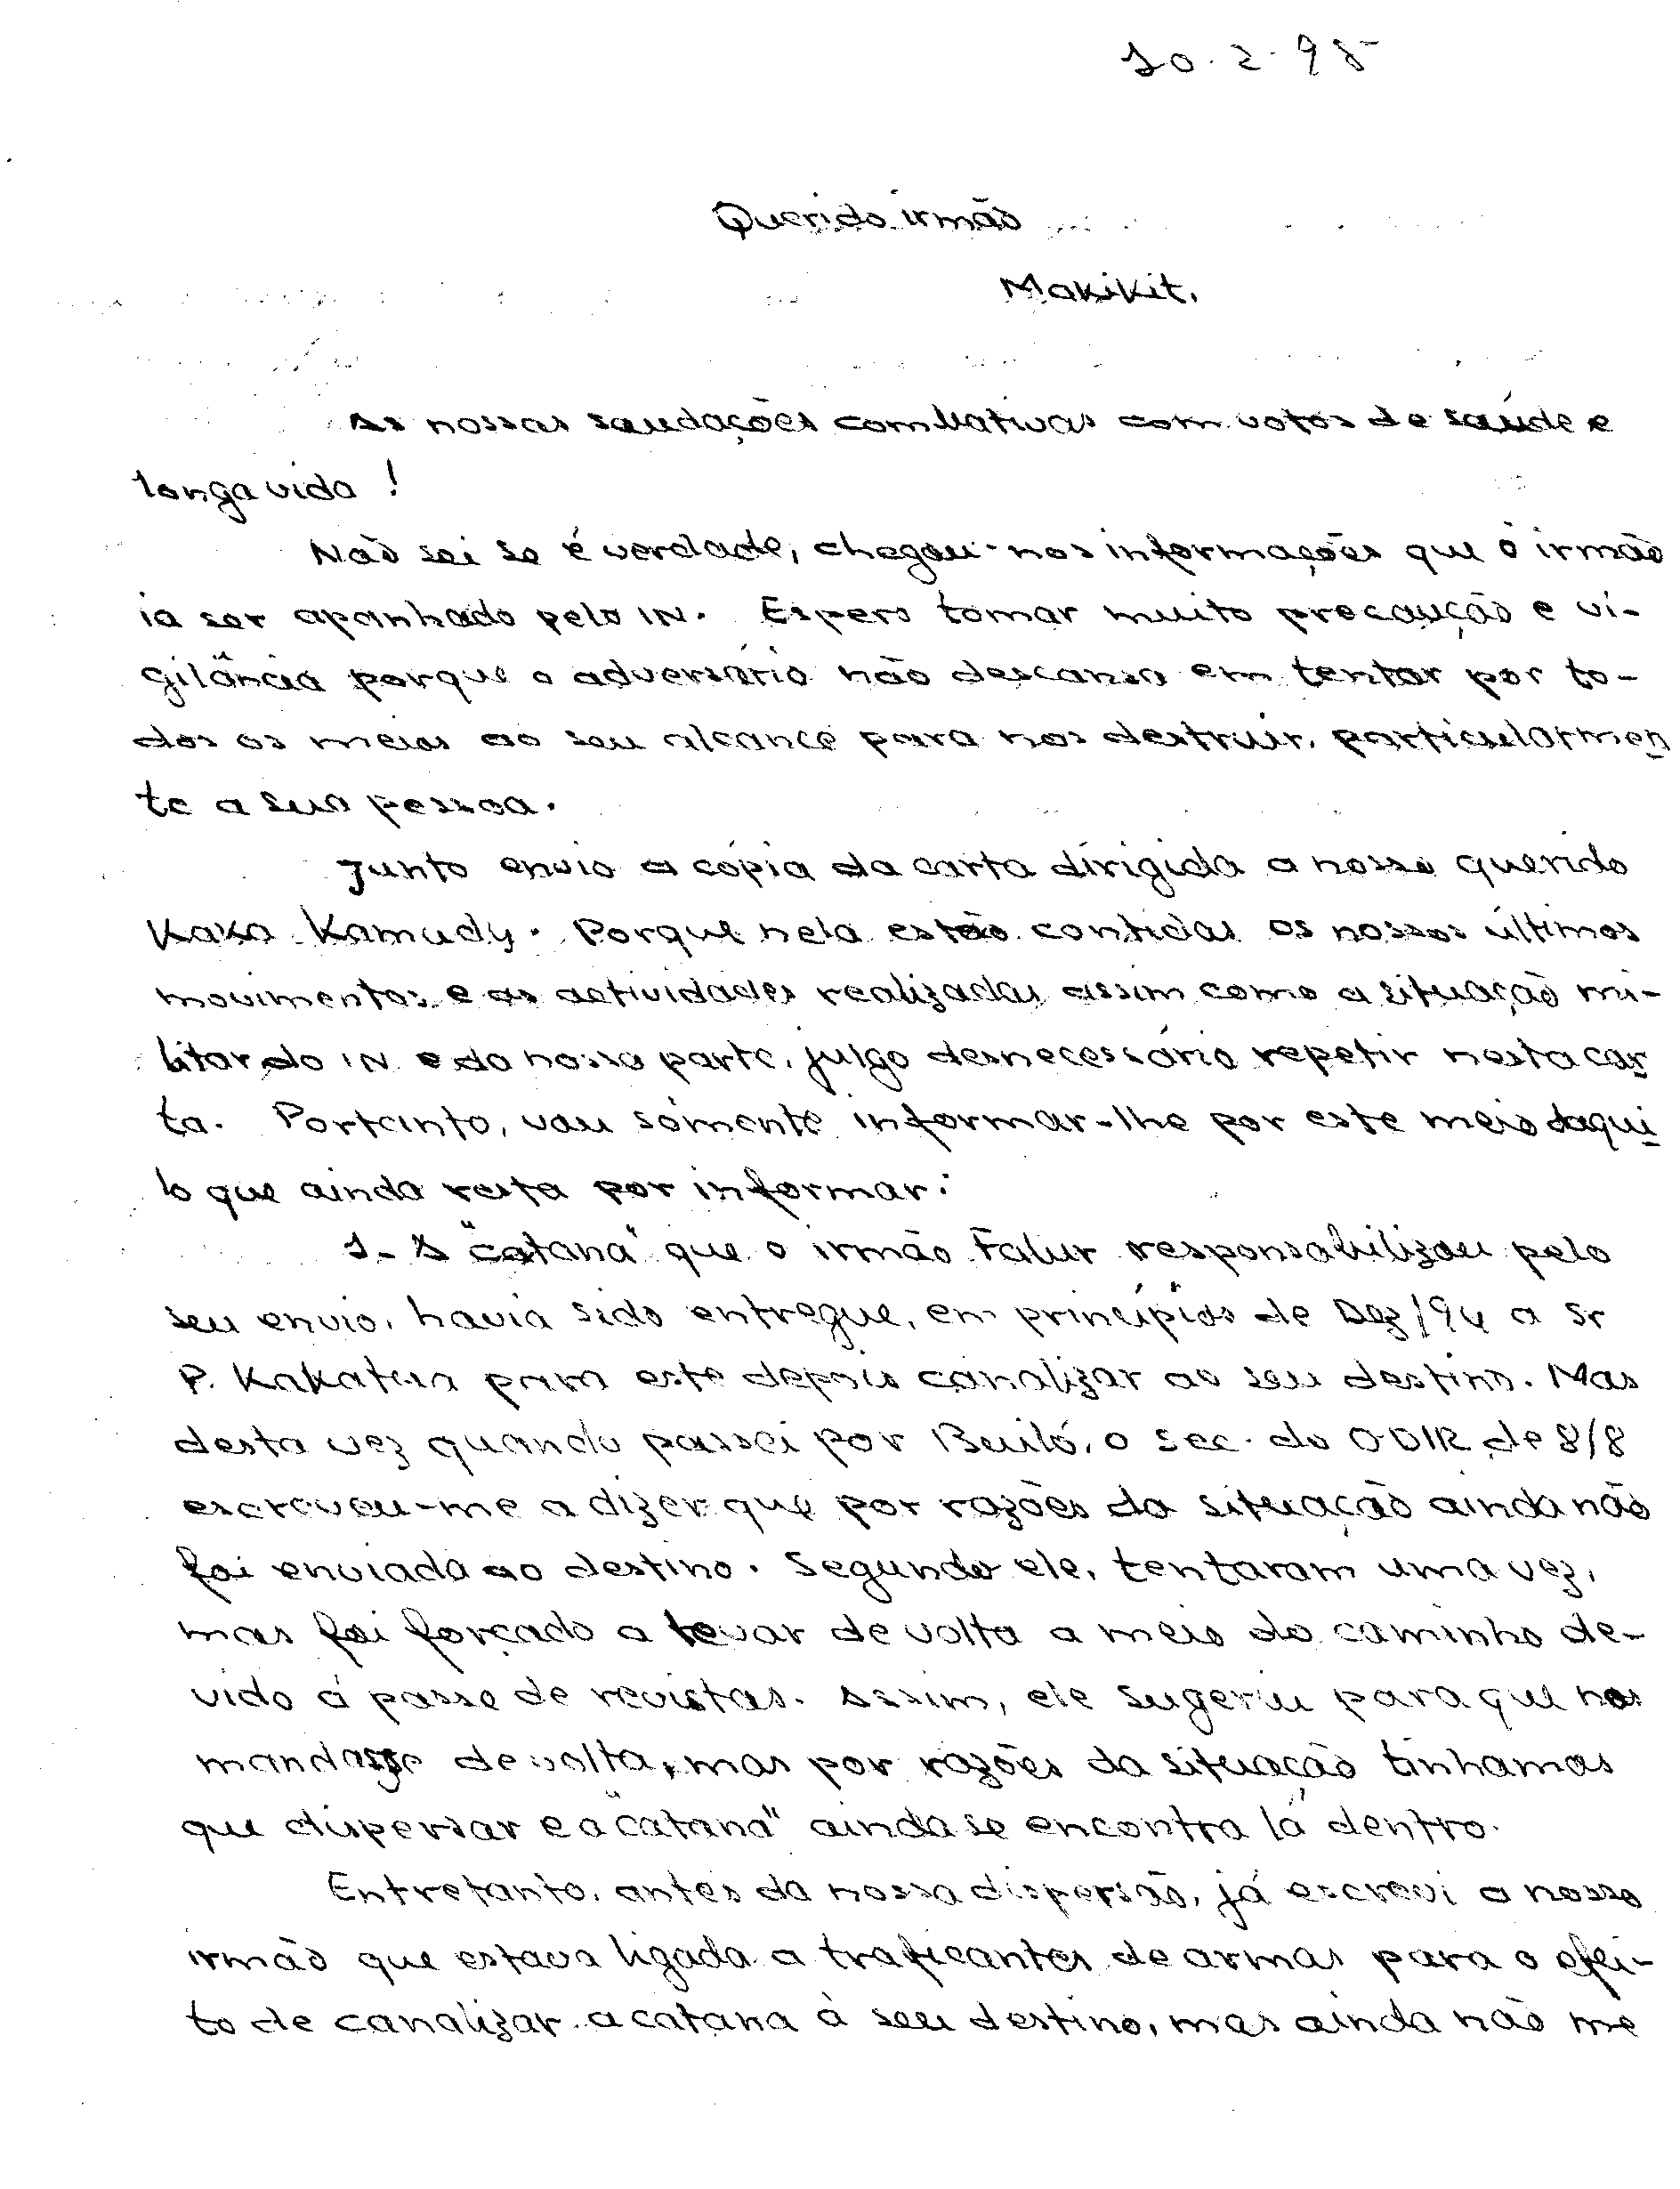 10.2.95
Querido irmão
Makikit,
As nossas saudações combativas com votos de saúde e
longa vida!
Não sei se é verdade, chegou-nos informações que o irmão
ia ser apanhado pelo IN. Espero tomar muito precaução e vi-
gilância porque o adversário não descansa em tentar por to-
dos os meios ao seu alcance para nos destruir, particularmen
te a sua pessoa.
Junto envio a cópia da carta dirigida a nosso querido
Kaka Kamudy. Porque nela estão contidas os nossos últimos
movimentos e as actividades realizadas assim como a situação mi-
litar do IN e da nossa parte, julgo desnecessário repetir nesta car
ta. Portanto, vou sómente informar-lhe por este meio daqui
lo que ainda resta por informar:
1- A "catana" que o irmão Falur responsabilizou pelo
seu envio, havia sido entregue, em princípios de Dez/94 a Sr
P. Kakatua para este depois canalizar ao seu destino. Mas
desta vez quando passei por Builó, o sec. do O-DIR de 8/8
escreveu-me a dizer que por razões da situação ainda não
foi enviada ao destino. Segundo ele, tentaram uma vez,
mas foi forçado a levar de volta a meio do caminho de-
vido á passe de revistas. Assim, ele sugeriu para que nos
mandasse de volta, mas por razões da situação tinhamos
que dispersar e a "catana" ainda se encontra lá dentro.
Entretanto, antes da nossa dispersão, já escrevi a nosso
irmão que estava ligada a traficantes de armas para o efei-
to de canalizar a catana à seu destino, mas ainda não me